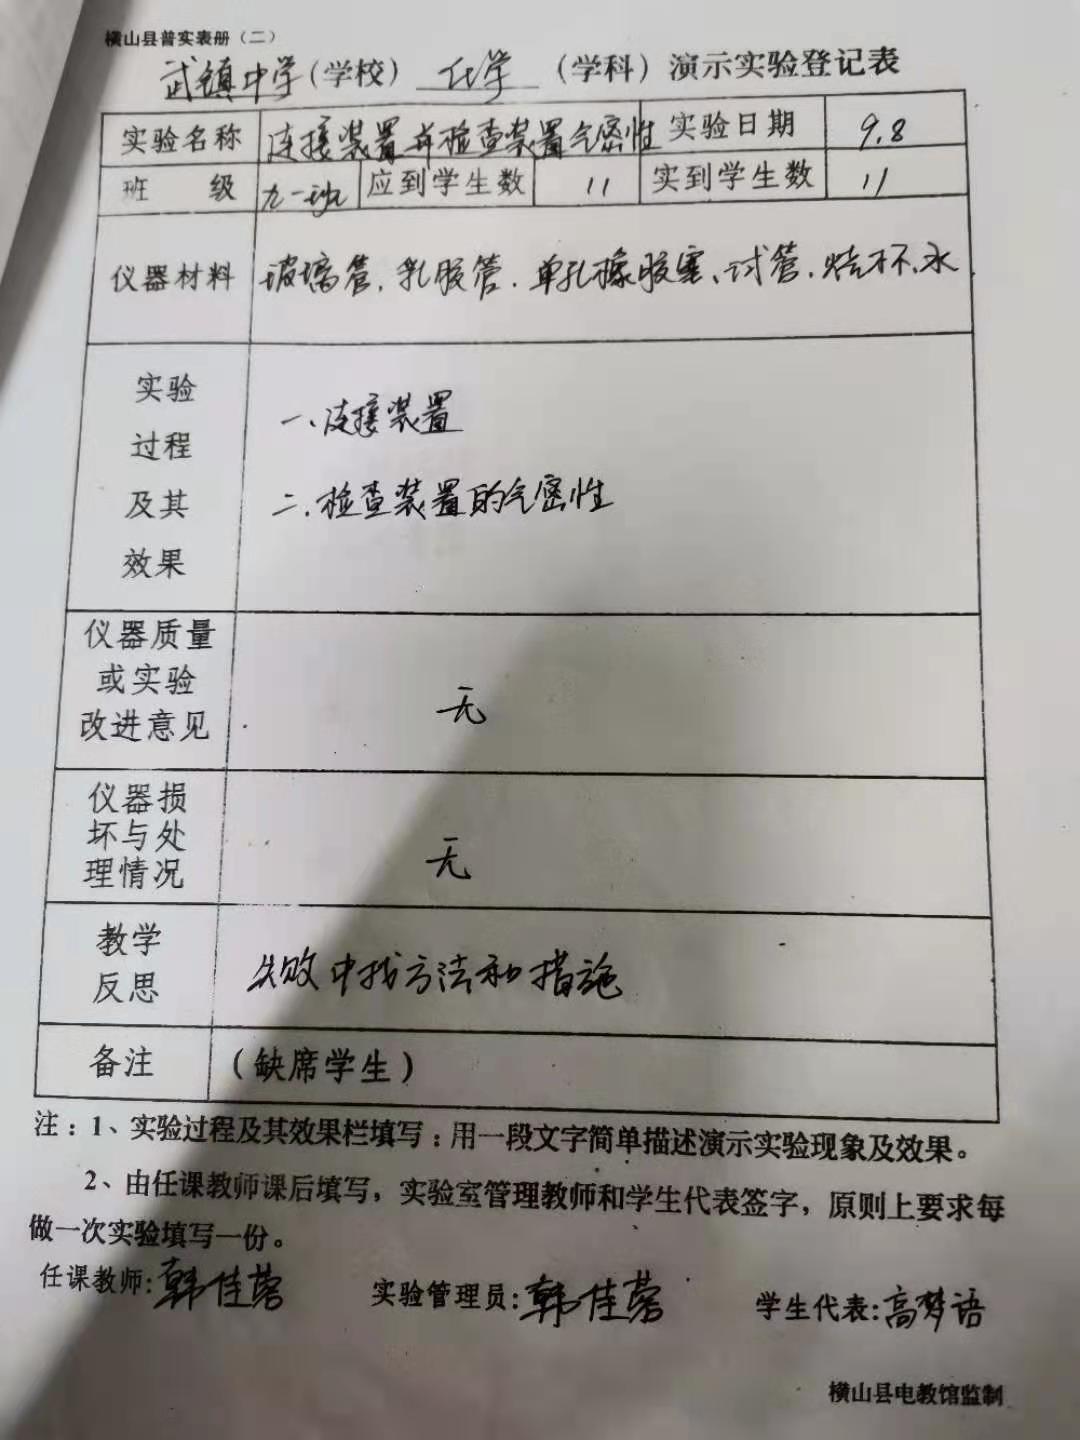 横山县普实表册（二）
武镇中学（学校）化学（学科）演示实验登记表
实验名称 连接装置并检查装置气密性 实验日期 9.8
班级 九一班 应到学生数 11 实到学生数 11
仪器材料 玻璃管、乳胶管、单孔橡胶塞、试管、烧杯、水
实验
过程
及其
效果
一、连接装置
二、检查装置的气密性
仪器质量
或实验
改进意见
无
仪器损
坏与处
理情况
无
教学
反思
失败中找方法和措施
备注 （缺席学生）
注：1、实验过程及其效果栏填写：用一段文字简单描述演示实验现象及效果。
2、由任课教师课后填写，实验室管理教师和学生代表签字，原则上要求每
做一次实验填写一份。
任课教师:韩佳蓉 实验管理员:韩佳蓉 学生代表:高梦语
横山县电教馆监制